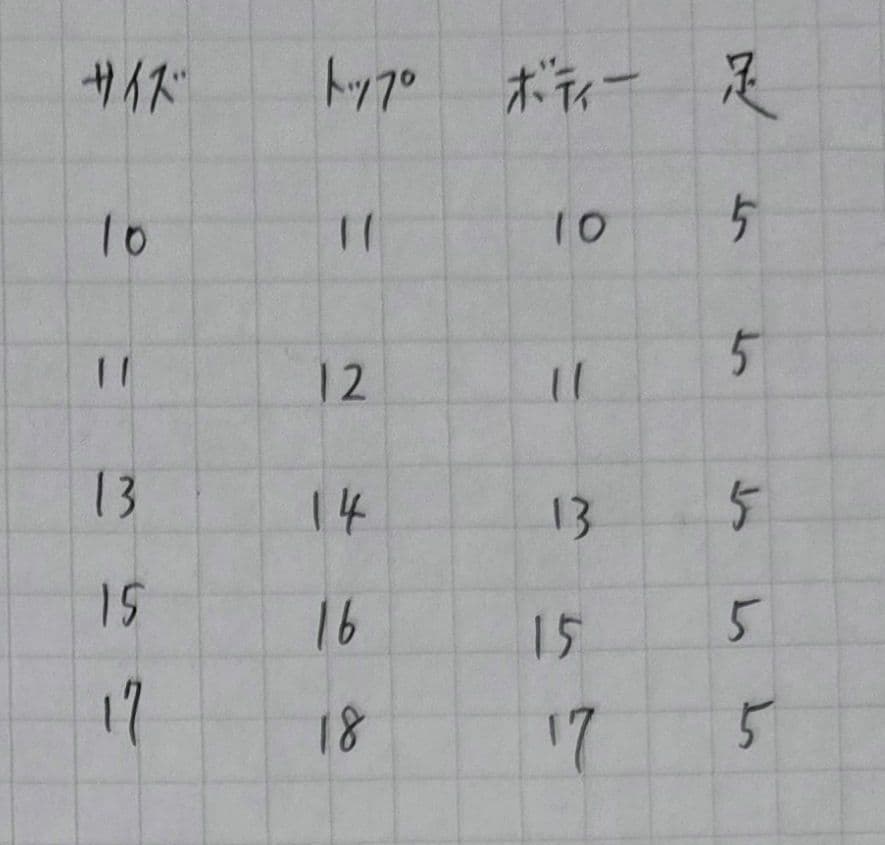 サイズ トップ ボディー 足
10 11 10 5
11 12 11 5
13 14 13 5
15 16 15 5
17 18 17 5